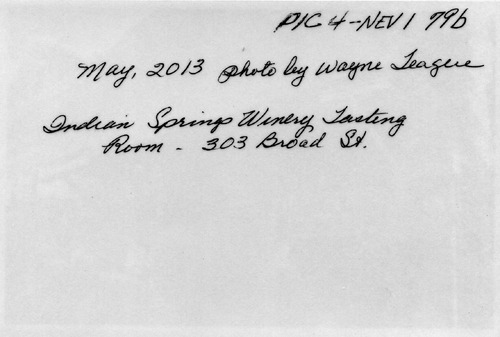 PIC 4-NEV 1 796
May, 2013 photo by Wayne Teague
Indian Springs Winery Tasting
Room - 303 Broad St.